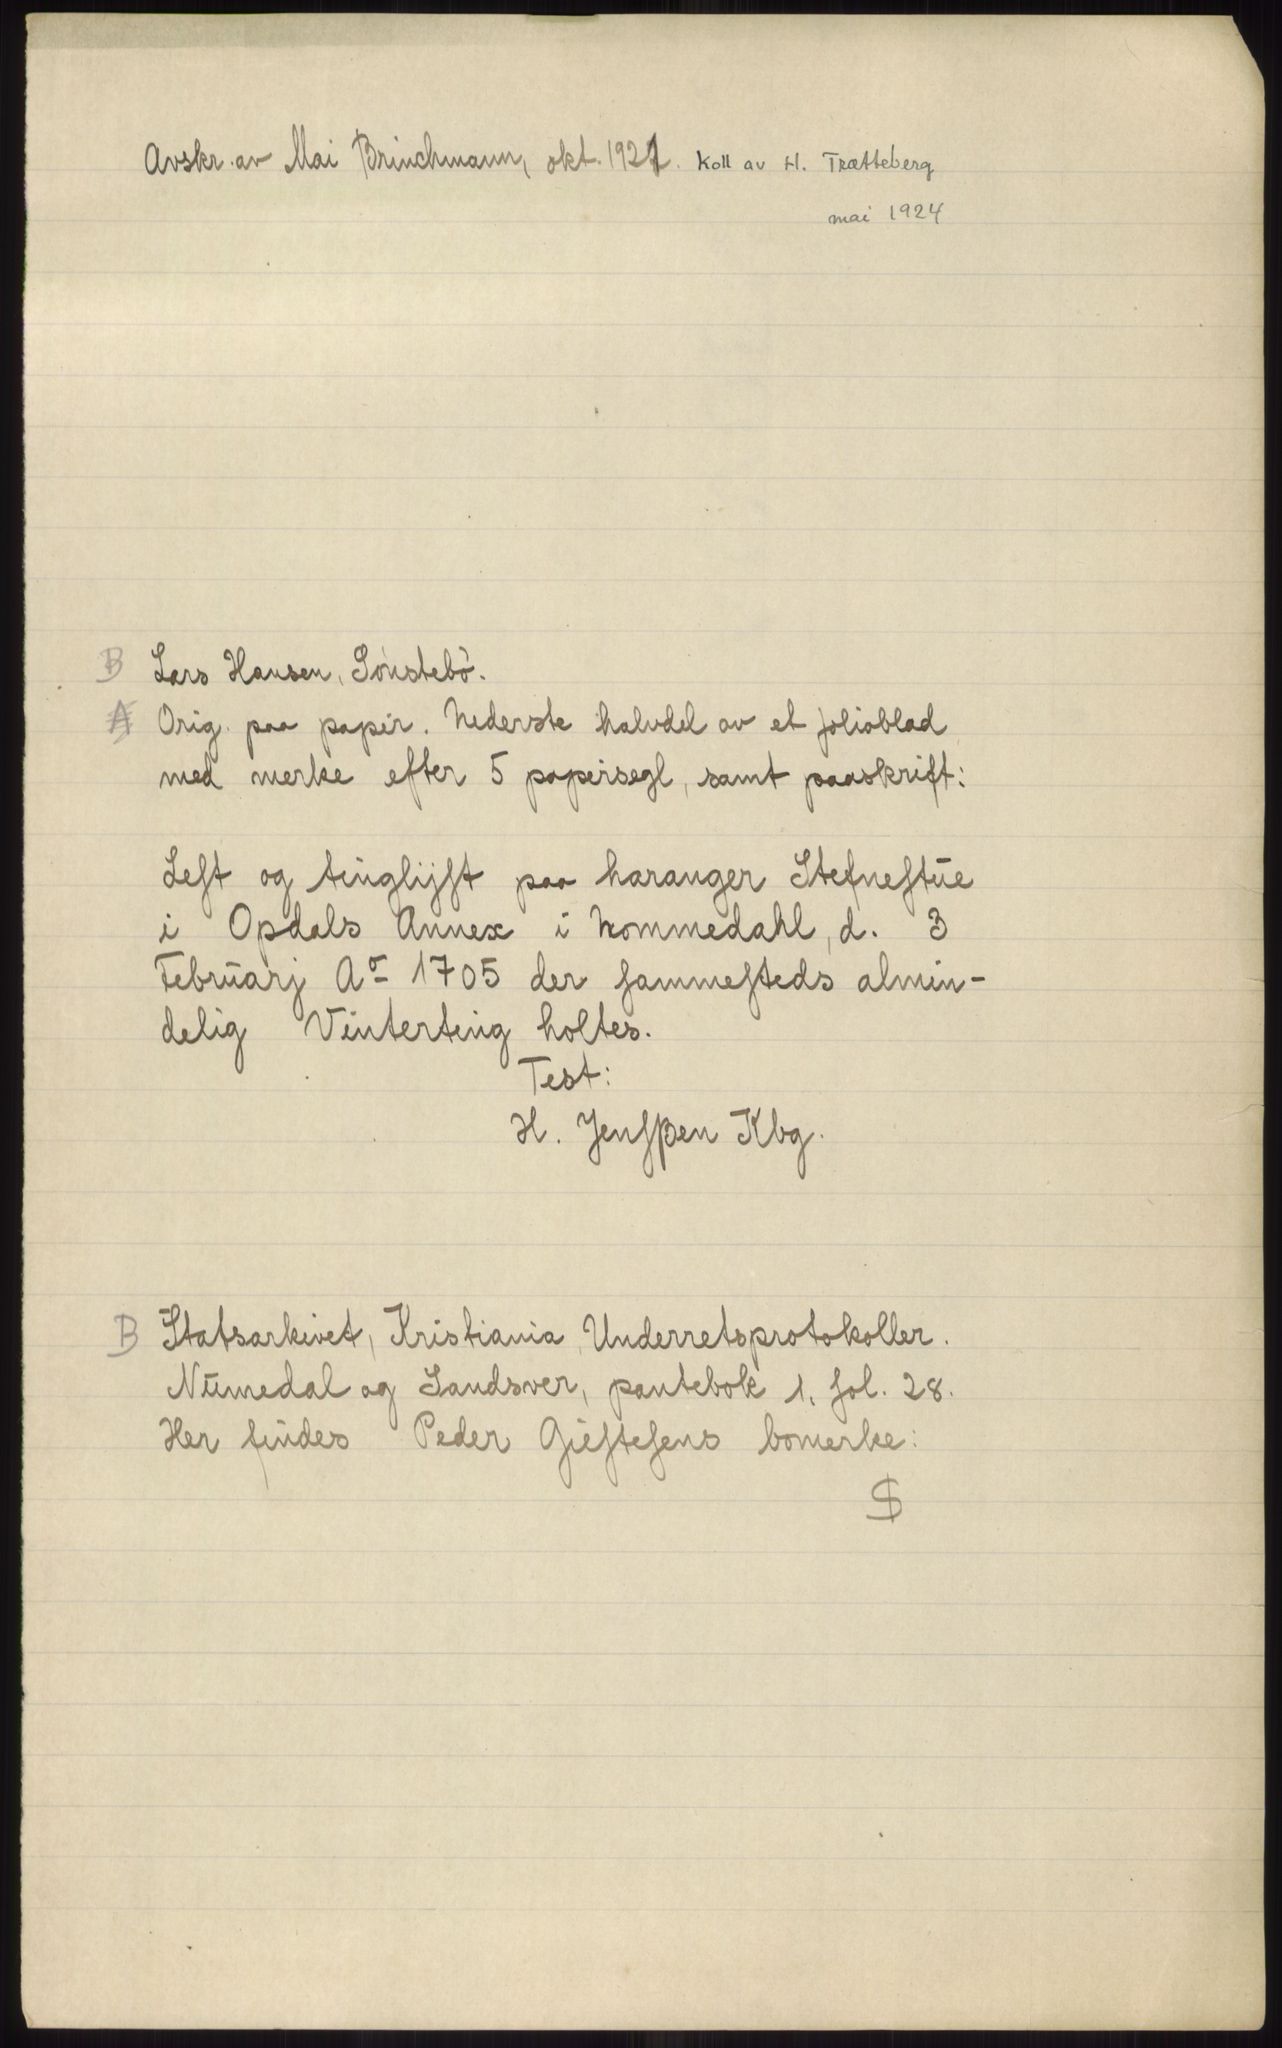 Avskr. av Mai Brinchmann, okt. 1921. Koll av H. Trætteberg
mai 1924
B Lars Hansen, Sønstebø.
A Orig. paa papir. Nederste halvdel av et folioblad
med merke efter 5 papirsegl, samt paaskrift:
Lest og tinglijst paa haranger Stefnestue
i Opdals Annex i Nommedahl, d. 3
Februarj Aº 1705 der sammesteds almin-
delig Vinterting holtes.
Test:
H. Jensßen Kbg.
B Statsarkivet, Kristiania, Underretsprotokoller.
Numedal og Sandsver, pantebok 1, fol. 28.
Her findes Peder Giestesens bomerke:
$